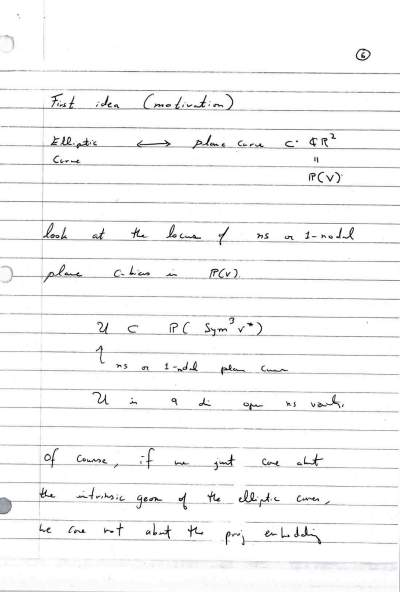 6
First idea (motivation)
Elliptic ⟷ plane curve C ⊂ ℙ²
Curve
=
ℙ(V)
look at the locus of ns or 1-nodal
plane cubics in ℙ(V)
U ⊂ ℙ( Sym³ V*)
↑ ns or 1-nodal plane curves
U is a 9 di open ns
Of course, if we just care about
the intrinsic geom of the elliptic curves,
we care not about the proj embedding